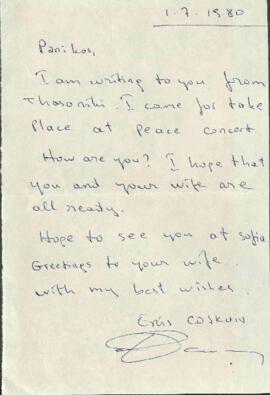 1.7.1980
Panikos,
I am writing to you from
Thasoniki. I came for take
Place at peace concert.
How are you? I hope that
you and your wife are
all ready.
Hope to see you at sofia
Greetings to your wife.
with my best wishes.
COSKUN